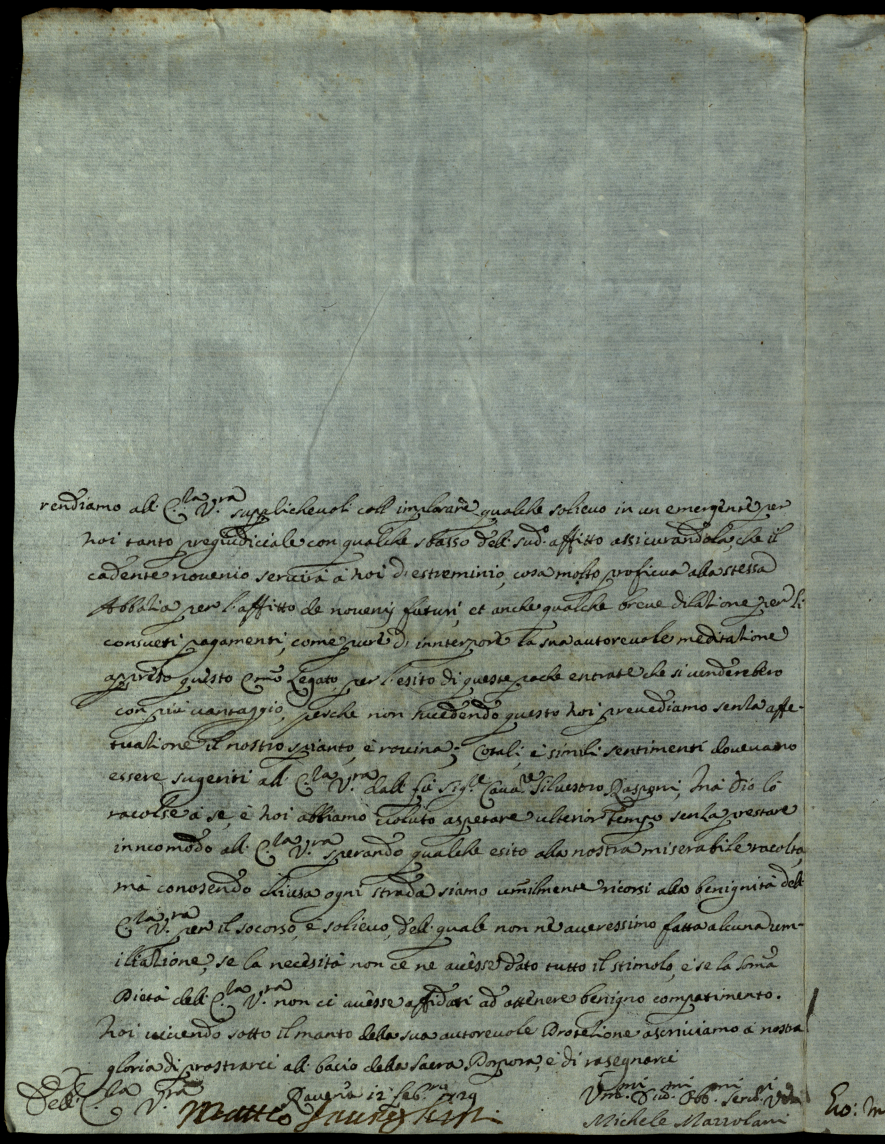 rendiamo all' E.la V.ra suplichevoli coll' implorare qualche solievo in un emergente per
noi tanto pregiudiciale con qualche sbasso dell' sud.o affitto assicurandola, che il
cadente novenio servirà à noi di estreminio, cosa molto proficua alla stessa
Abbatia per l'affitto de novenij futuri, et anche qualche breve dilatione per li
consueti pagamenti, come pure di innterpore la sua autorevole meditatione
apreso questo Em̃o Legato, per l'esito di queste poche entrate che si venderebero
con più vantaggio, perche non sucedendo questo noi prevediamo senza affe-
tuatione il nostro spianto, e rovina; Cotali, e simili sentimenti dovevano
essere sugeriti all' E.la V.ra dall' fù Sig.e Cava.re Silvestro Rasponi, mà Dio lo
racolse à se, e noi abbiamo voluto aspetare ulterior tempo senza prestare
inncomodo all' E.la V.ra sperando qualche esito alla nostra miserabile racolta,
mà conosendo chiusa ogni strada siamo umilmente ricorsi alla benignità dell'
E.la V.ra per il socorso, e solievo, dell' quale non ne averessimo fatta alcuna um-
iliatione, se la necesità non ce ne avesse dato tutto il stimolo, e se la Som̃a
Pietà dell' E.la V.ra non ci avesse affidati ad ottenere benigno compatimento.
Noi vivendo sotto il manto della sua autorevole Protetione ascriviamo a nostra
gloria di prostrarci all' bacio della Sacra Porpora, e di rasegnarci
Dell' E.la V.ra
Ravenna 12 Feb.ro 1729
Um.mi Div.mi Obb.mi Serv.ri
Matteo
Michele Mazzolani